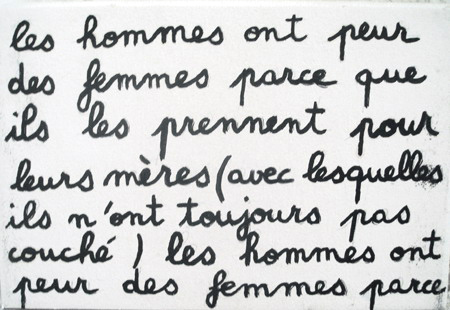 les hommes ont peur
des femmes parce que
ils les prennent pour
leurs mères (avec lesquelles
ils n'ont toujours pas
couché) les hommes ont
peur des femmes parce